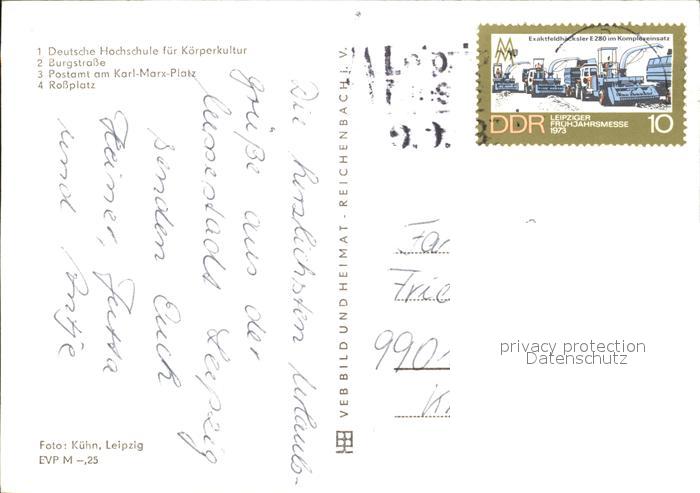 1 Deutsche Hochschule für Körperkultur
2 Burgstraße
3 Postamt am Karl-Marx-Platz
4 Roßplatz
Die herzlichsten Urlaubs-
grüße aus der
Messestadt Leipzig
senden Euch
Heiner, Jutta
und Antje
Foto: Kühn, Leipzig
EVP M –,25
VEB BILD UND HEIMAT - REICHENBACH i. V.
Exaktfeldhäcksler E 280 im Komplexeinsatz
DDR LEIPZIGER
FRÜHJAHRSMESSE
1973
10
990
privacy protection
Datenschutz